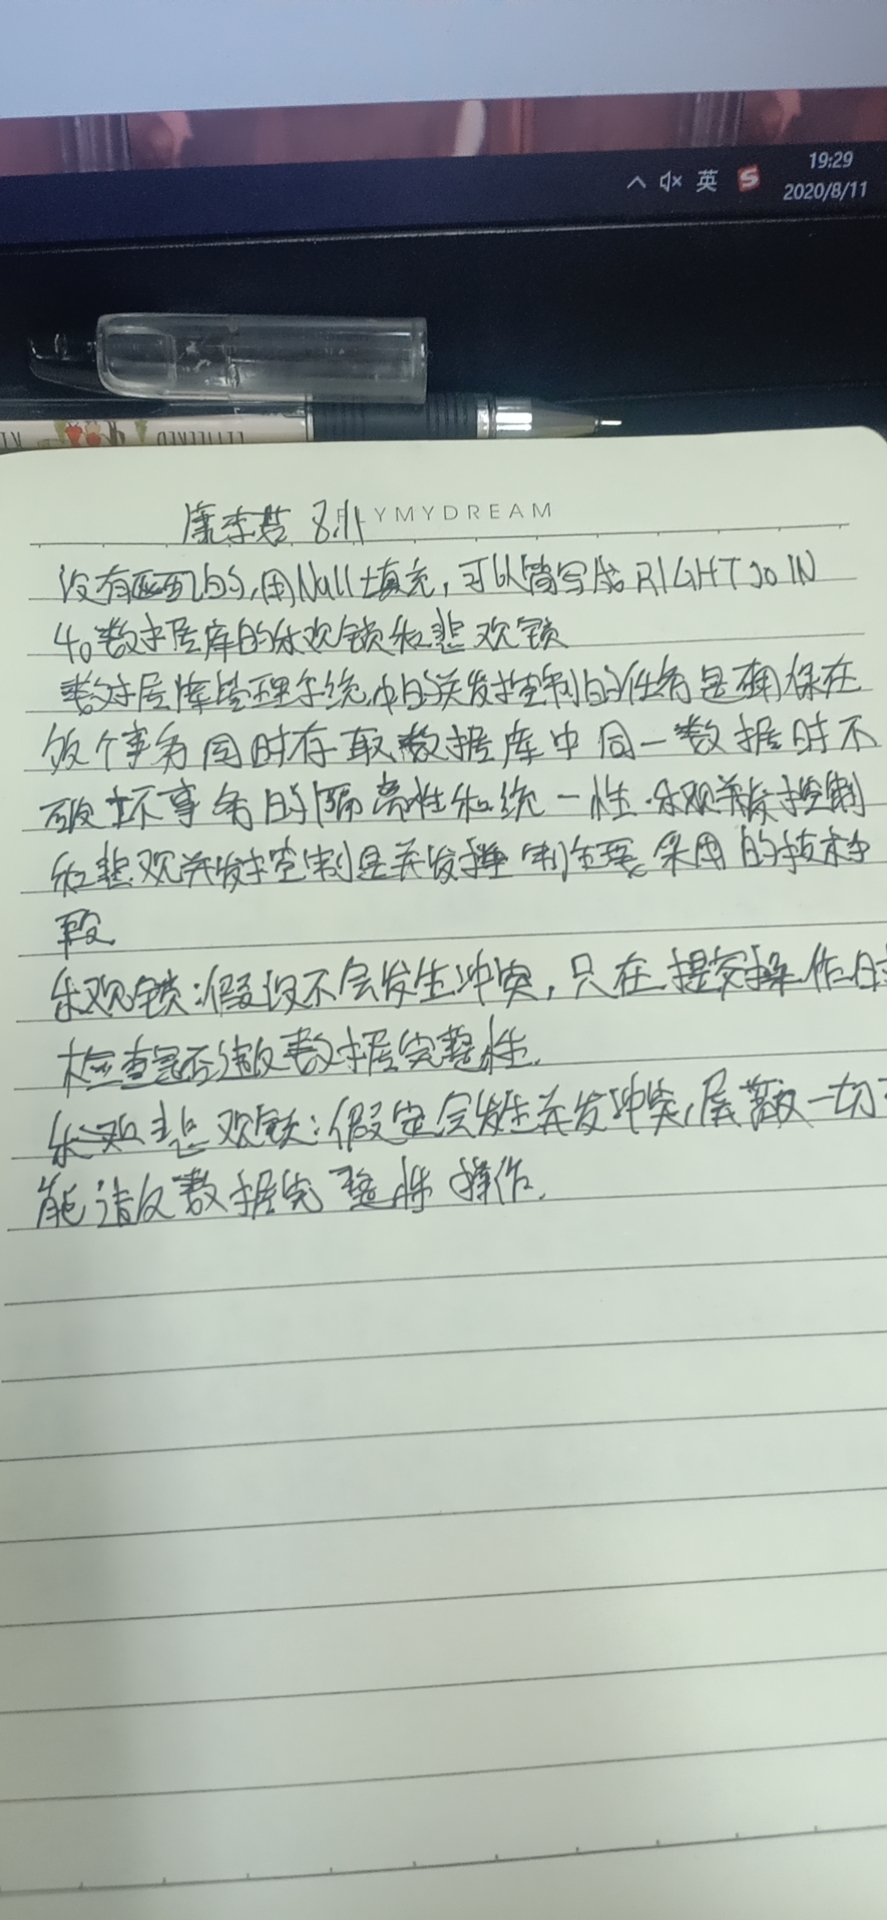 19:29
英
2020/8/11
LETTERED
康李哲 8.11
YMYDREAM
没有匹配的,用Null填充,可以简写成RIGHT JOIN
4。数据库的乐观锁和悲观锁
数据库管理系统中的并发控制的任务是确保在
多个事务同时存取数据库中同一数据时不
破坏事务的隔离性和统一性.乐观并发控制
和悲观并发控制是并发控制主要采用的技术手
段
乐观锁:假设不会发生冲突,只在提交操作时
检查是否违反数据完整性.
悲观锁:假定会发生并发冲突,屏蔽一切可
能违反数据完整性操作.